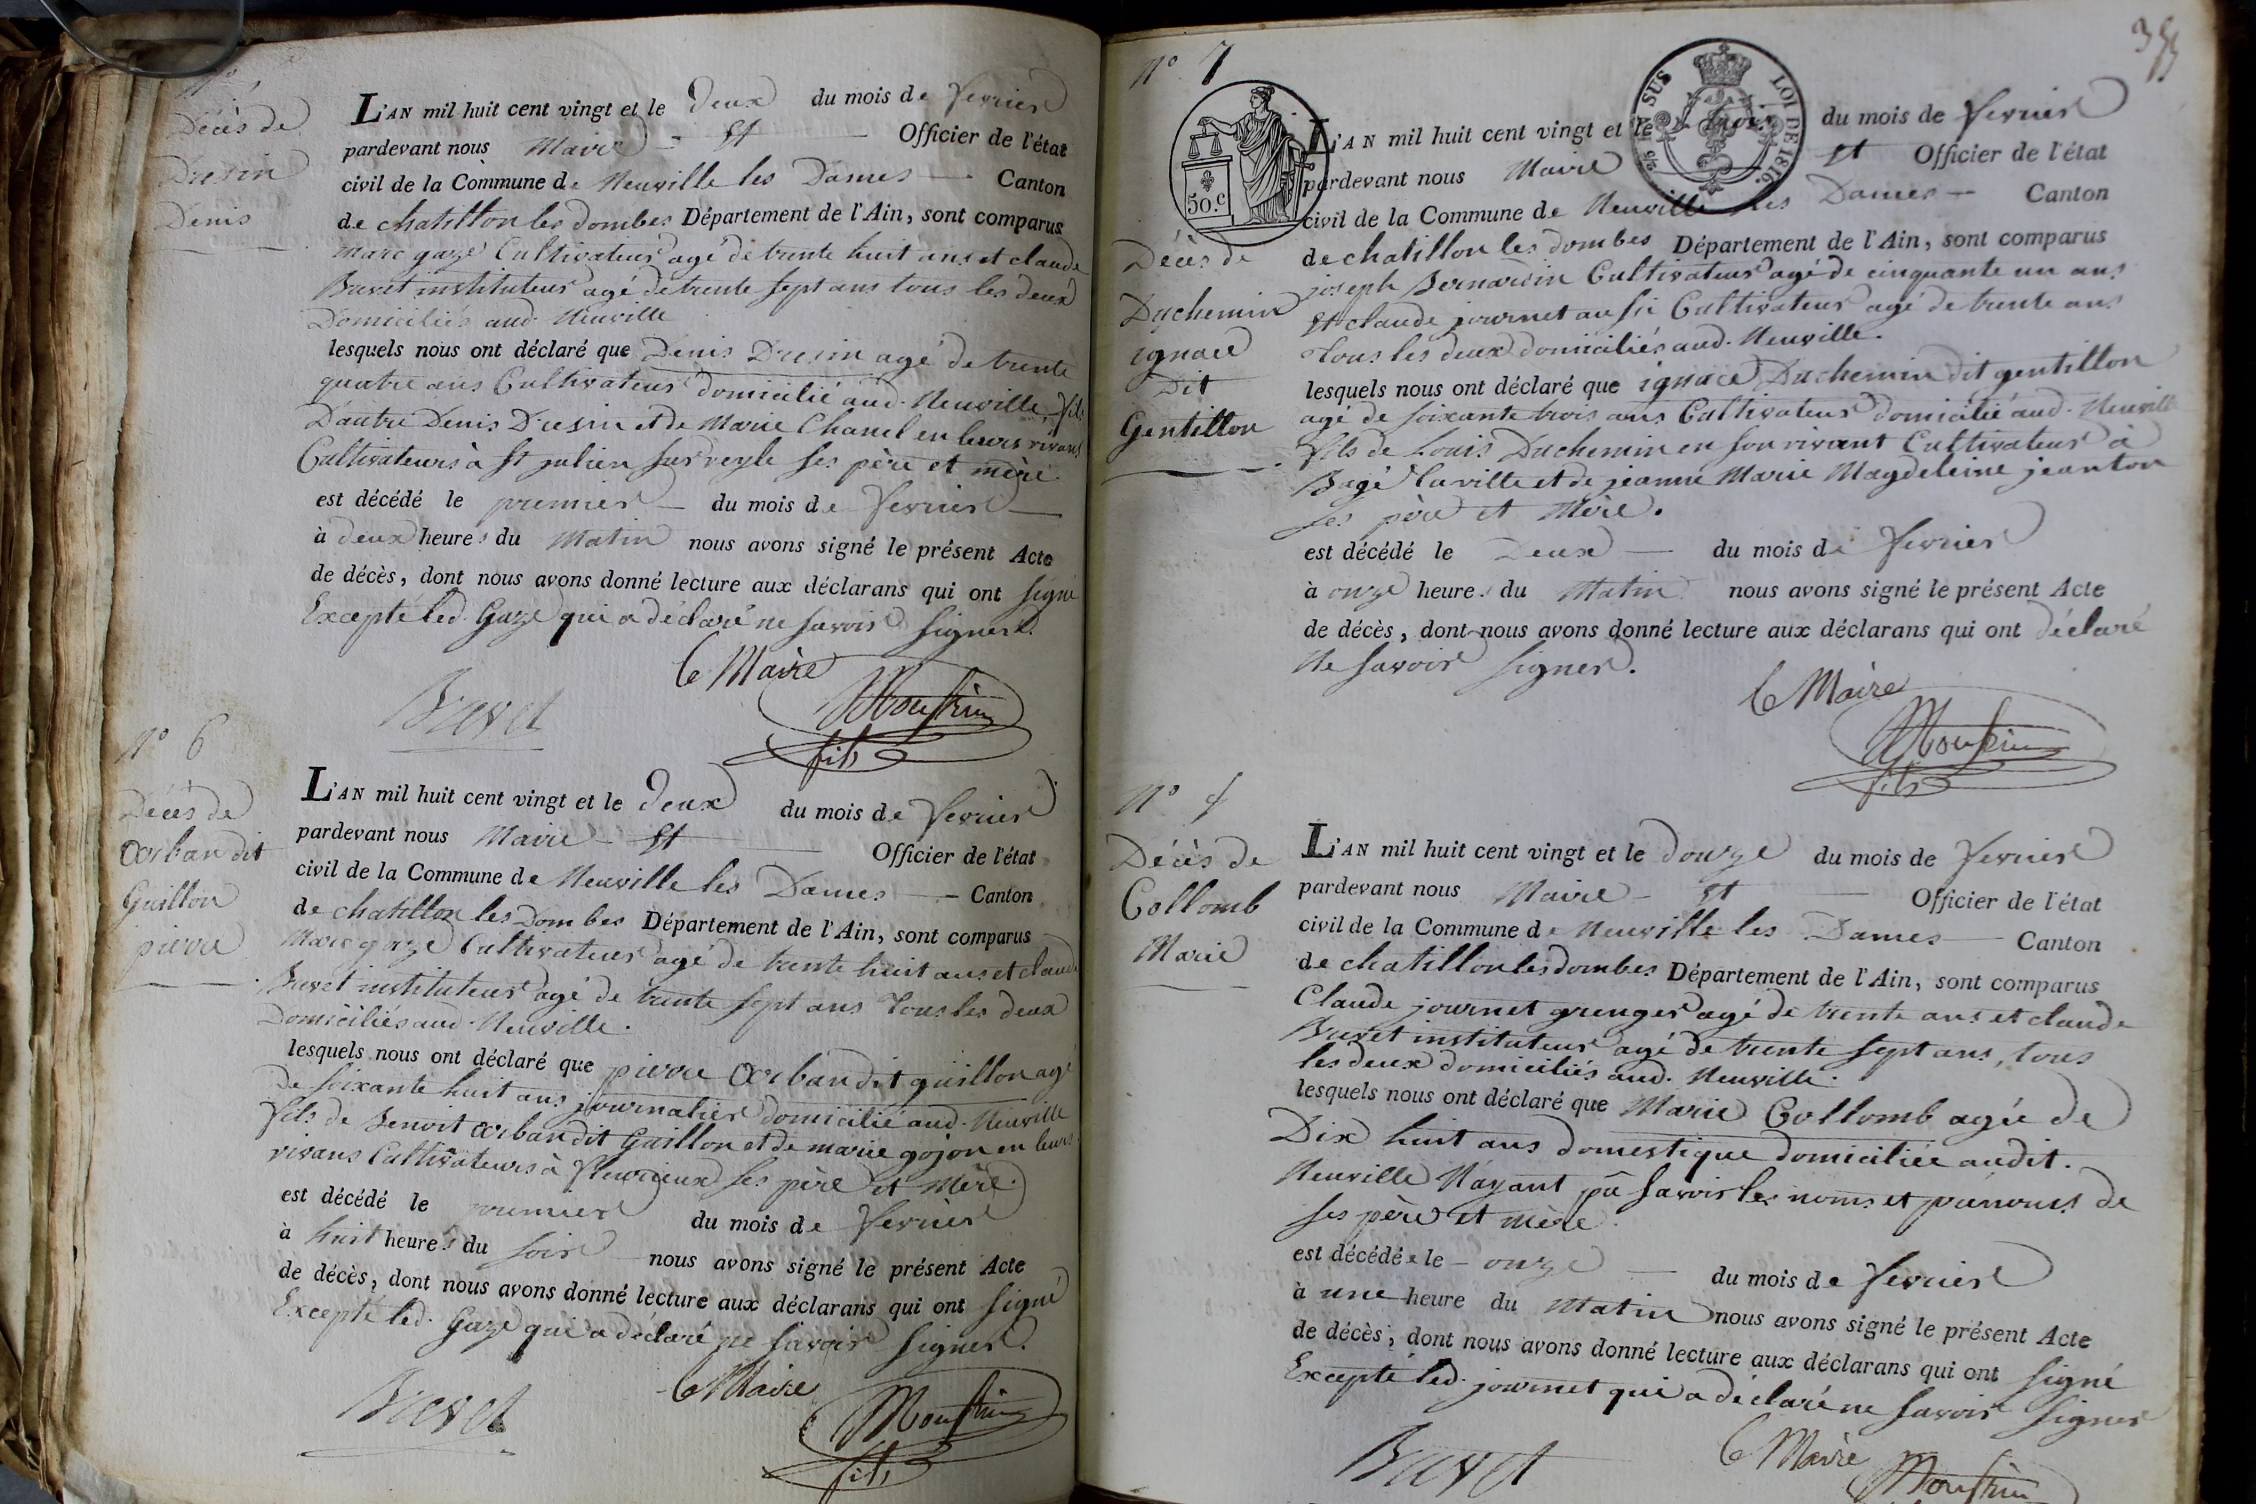 Décès de
Dresin
Denis
L'AN mil huit cent vingt et le deux du mois de fevrier
pardevant nous Maire - Et - Officier de l'état
civil de la Commune de Neuville les Dames - Canton
de chatillon les dombes Département de l'Ain, sont comparus
marc gazé Cultivateur agé de trente huit ans et claude
Buvet instituteur agé de trente sept ans tous les deux
Domiciliés aud. Neuville
lesquels nous ont déclaré que Denis Dresin agé de trente
quatre ans Cultivateur domicilié aud. Neuville, fils
D'autre Denis Dresin et de Marie Chanel en leurs vivans
Cultivateurs à St julien sur veyle ses père et mère.
est décédé le premier - du mois de fevrier -
à deux heures du Matin nous avons signé le présent Acte
de décès, dont nous avons donné lecture aux déclarans qui ont signé
Excepté led. Gazé qui a déclaré ne savoir signer.
Le Maire
Buvet
fils
N° 6
Décès de
Orban dit
Guillon
pierre
L'AN mil huit cent vingt et le deux du mois de fevrier
pardevant nous Maire - Et - Officier de l'état
civil de la Commune de Neuville les Dames - Canton
de chatillon les Dombes Département de l'Ain, sont comparus
Marc gazé Cultivateur agé de trente huit ans et claude
Buvet instituteur agé de trente sept ans Tous les deux
Domiciliés aud. Neuville.
lesquels nous ont déclaré que pierre Orban dit guillon agé
De soixante huit ans journalier domicilié aud. Neuville
fils de Benoit orban dit Guillon et de marie gojon en leurs
vivans Cultivateurs à fleurieux ses père et Mère.
est décédé le premier du mois de fevrier
à huit heures du soir nous avons signé le présent Acte
de décès, dont nous avons donné lecture aux déclarans qui ont signé
Excepté led. Gazé qui a déclaré ne savoir signer.
Le Maire
Buvet
fils
N° 7
50.c
EN SUS
LOI DE 1816.
Décès de
Duchemin
ignace
Dit
Gentillon
L'AN mil huit cent vingt et le trois du mois de fevrier
pardevant nous Maire Et Officier de l'état
civil de la Commune de Neuville les Dames - Canton
de chatillon les dombes Département de l'Ain, sont comparus
joseph Bernardin Cultivateur agé de cinquante un ans
Et claude journet aussi Cultivateur agé de trente ans
Tous les deux domiciliés aud. Neuville.
lesquels nous ont déclaré que ignace Duchemin dit gentillon
agé de soixante trois ans Cultivateur domicilié aud. Neuville
fils de Louis Duchemin en son vivant Cultivateur à
Bagé la ville et de jeanne Marie Magdeleine jeanton
ses père et Mère.
est décédé le Deux - du mois de fevrier
à onze heures du Matin nous avons signé le présent Acte
de décès, dont nous avons donné lecture aux déclarans qui ont déclaré
Ne savoir signer.
Le Maire
fils
N° 8
Décès de
Collomb
Marie
L'AN mil huit cent vingt et le douze du mois de fevrier
pardevant nous Maire - Et - Officier de l'état
civil de la Commune de Neuville les Dames - Canton
de chatillon les dombes Département de l'Ain, sont comparus
Claude journet granger agé de trente ans et claude
Buvet instituteur agé de trente sept ans, tous
les deux domiciliés aud. Neuville.
lesquels nous ont déclaré que Marie Collomb agée de
Dix huit ans domestique domiciliée audit.
Neuville N'ayant pû savoir les noms et prénoms de
ses père et mère.
est décédée le - onze - du mois de fevrier
à une heure du Matin nous avons signé le présent Acte
de décès, dont nous avons donné lecture aux déclarans qui ont signé
Excepté led. journet qui a déclaré ne savoir signer
Le Maire
Buvet